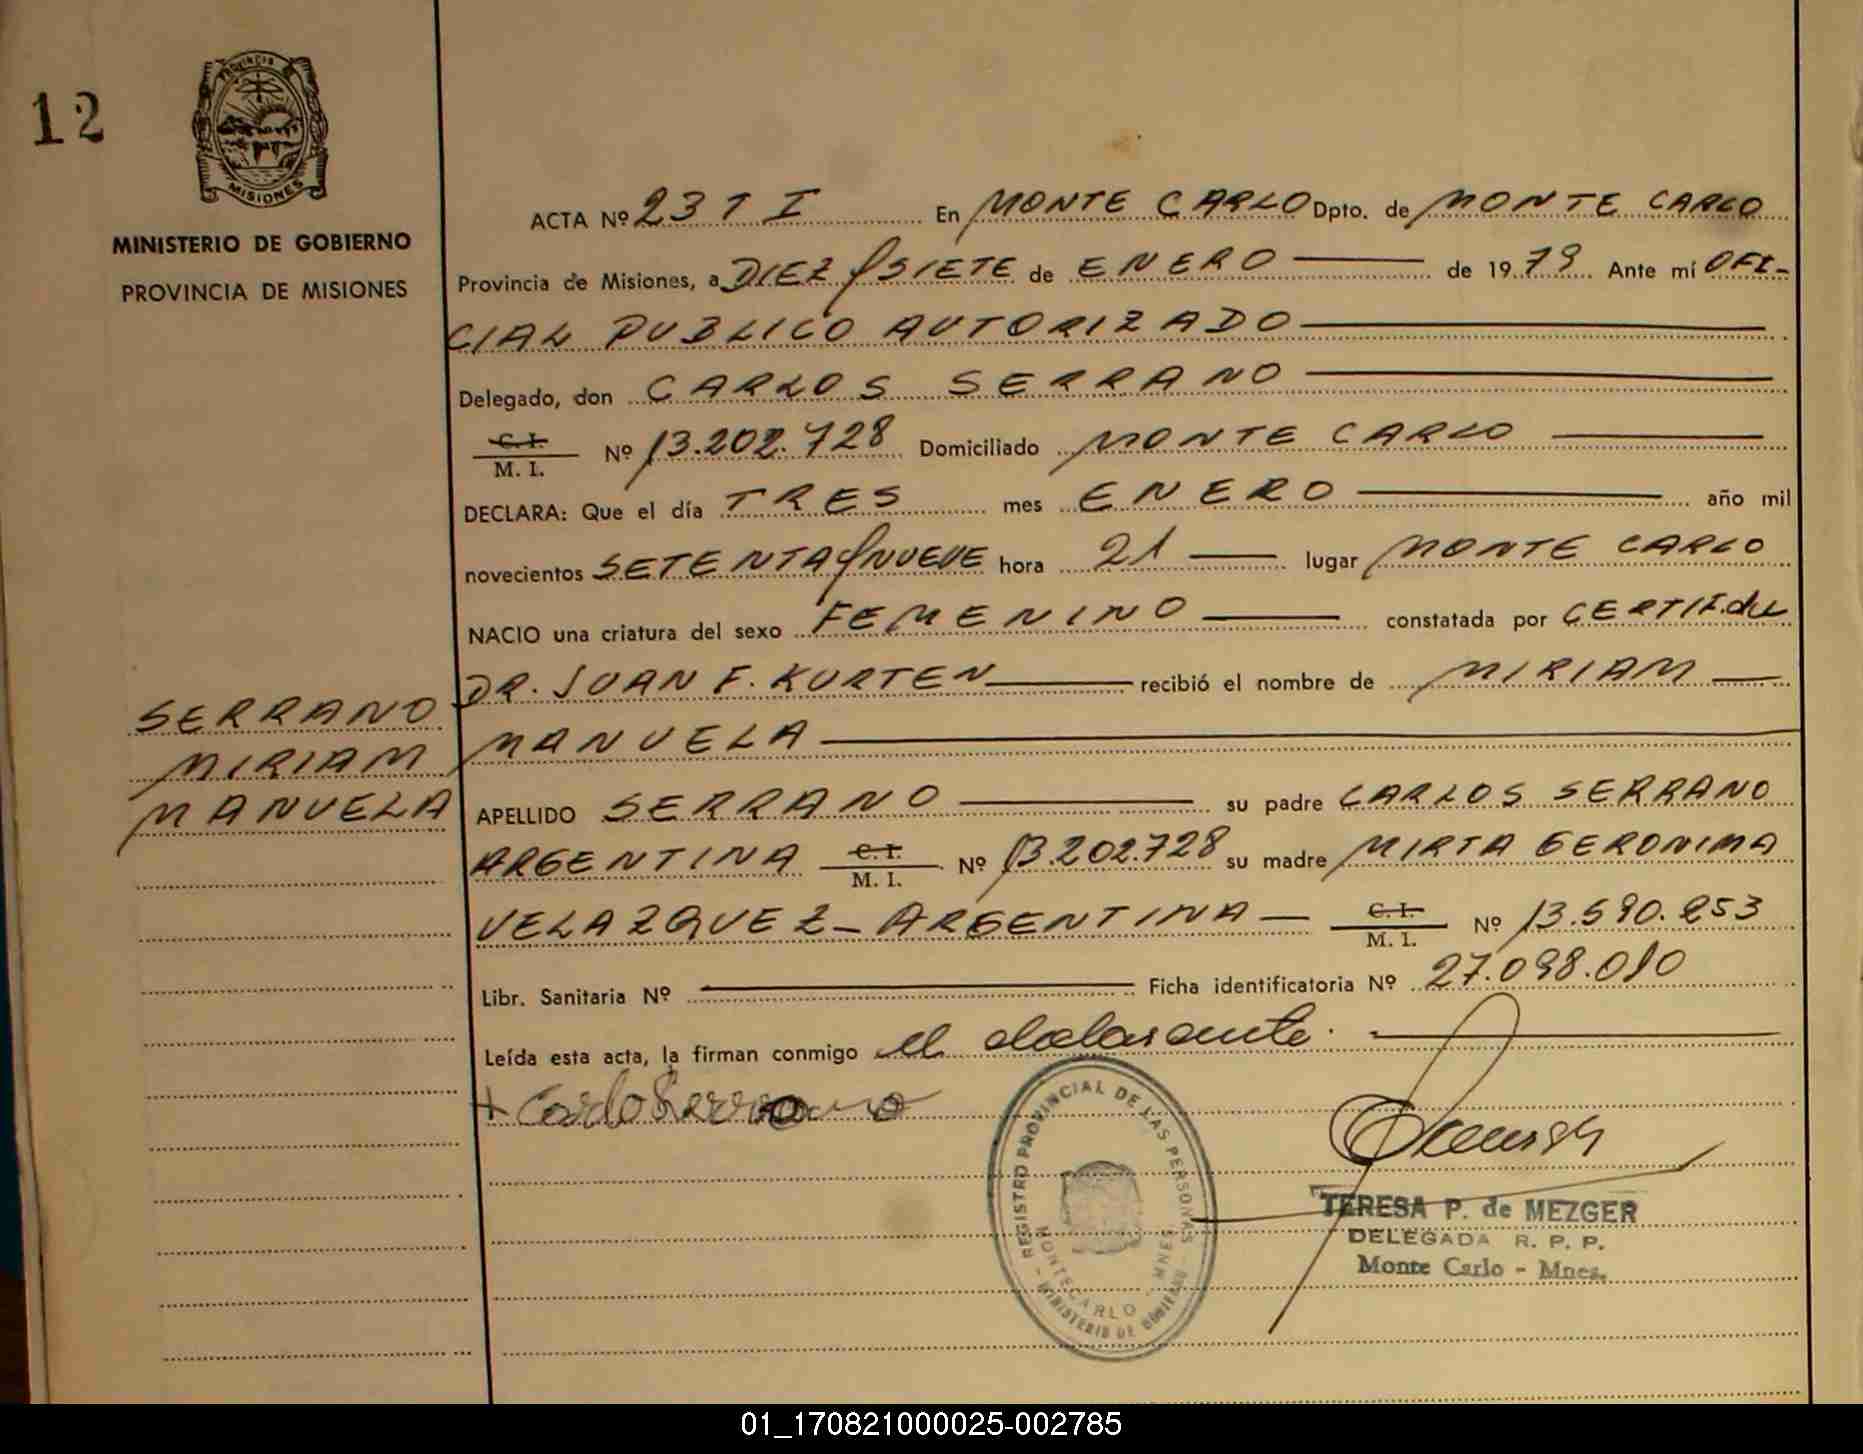 12
PROVINCIA
MISIONES
MINISTERIO DE GOBIERNO
PROVINCIA DE MISIONES
SERRANO
MIRIAM
MANUELA
ACTA Nº 23 T I En MONTE CARLO Dpto. de MONTE CARLO
Provincia de Misiones, a DIEZ y SIETE de ENERO de 19 79 Ante mí OFI-
CIAL PUBLICO AUTORIZADO
Delegado, don CARLOS SERRANO
C. I.
M. I. Nº 13.202.728 Domiciliado MONTE CARLO
DECLARA: Que el día TRES mes ENERO año mil
novecientos SETENTA y NUEVE hora 21 lugar MONTE CARLO
NACIO una criatura del sexo FEMENINO constatada por CERTIF. del
DR. JUAN F. KURTEN recibió el nombre de MIRIAM
MANUELA
APELLIDO SERRANO su padre CARLOS SERRANO
ARGENTINA C. I. M. I. Nº 13.202.728 su madre MIRTA GERONIMA
VELAZQUEZ - ARGENTINA C. I. M. I. Nº 13.590.253
Libr. Sanitaria Nº Ficha identificatoria Nº 27.098.010
Leída esta acta, la firman conmigo el declarante.
+ Carlo Serrano
REGISTRO PROVINCIAL DE LAS PERSONAS
MONTECARLO - MNES
MINISTERIO DE GOBIERNO
TERESA P. de MEZGER
DELEGADA R. P. P.
Monte Carlo - Mnes.
01_170821000025-002785